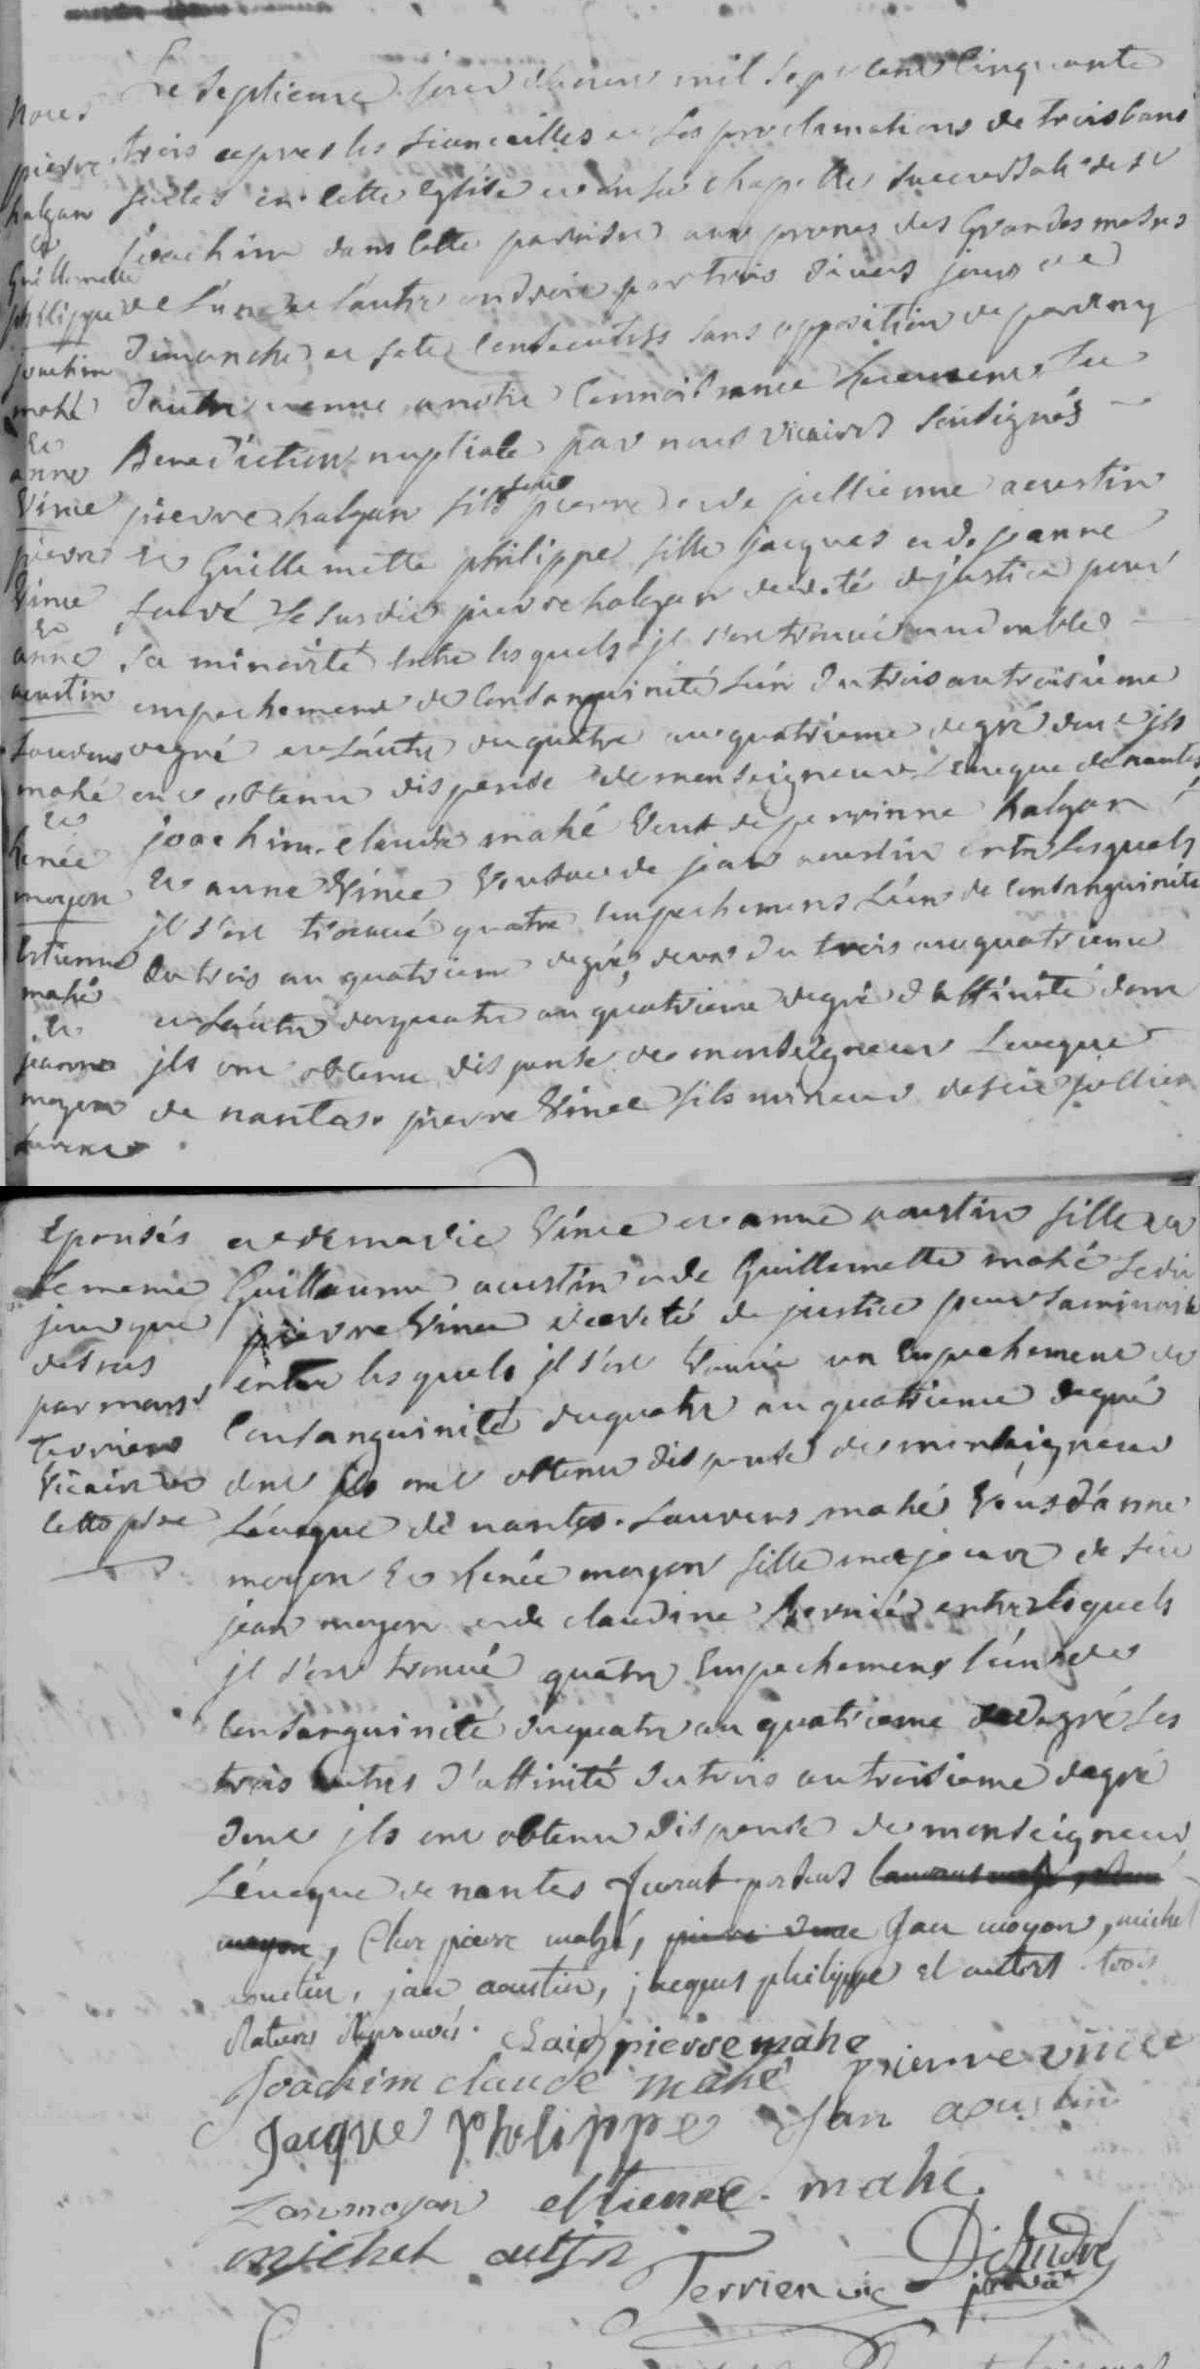 Le septieme jour mil sept cent cinquante
trois apres les fiancailles et les proclamations de trois bans
faites en cette eglise et en la chapelle succursale de st
joachim dans cette paroisse aux prones des Grandes messes
de l'une et l'autre endroit par trois divers jours de
dimanche et fete consecutifs sans opposition de part ny
d'autre venue a notre connoissance Recurent la
Benediction nuptiale par nous vicaires soussignés
pierre halgan fils feu pierre et de jullienne aoustin
et Guillemette philippe fille jacques et de jeanne
le susdit pierre halgan decreté de justice pour
sa minorité entre lesquels jl s'est trouvé un double
empechement de consanguinité l'un du trois au troisieme
degré et l'autre du quatre au quatrieme degré dont jls
ont obtenu dispense de monseigneur l'eveque de nantes
joachim claude mahé Veuf de perrinne halgan
et anne Vince Veufve de jean aoustin entre lesquels
jl s'est trouvé quatre empechemens l'un de consanguinité
du trois au quatrieme degré, deux du trois au quatrieme
et l'autre du quatre au quatrieme degré d'affinité dont
jls ont obtenu dispense de monseigneur l'eveque
de nantes. pierre Vince fils mineur de feu jullien
Nous
pierre
halgan
et
Guillemette
philippe
joachim
mahé
et
anne
Vince
pierre
Vince
et
anne
aoustin
Laurens
mahé
et
Renée
moyon
Estienne
mahé
et
jeanne
moyon
furent
et de marie Vince et anne aoustin fille de
Guillaume aoustin et de Guillemette mahé ledit
pierre Vince decreté de justice pour sa minorité
entre lesquels jl s'est trouvé un Empechement de
consanguinité du quatre au quatrieme degré
dont jls ont obtenu dispense de monseigneur
L'éveque de nantes. Laurens mahé Veuf d'anne
moyon Et Renée moyon fille majeure de feu
jean moyon et de claudine entre lesquels
jl s'est trouvé quatre Empechemens l'un de
consanguinité du quatre au quatrieme degré les
trois autres d'affinité du trois au troisieme degré
dont jls ont obtenu dispense de monseigneur
L'éveque de nantes furent presens laurens mahé, rené
moyon, Cler pierre mahé, pierre vince Jan moyon, michel
aoustin, jan aoustin, jacques philippe et autres trois
Ratures aprouvés. pierre mahe
Joachim claude mahé pierre vince
Jacque Phelippe Jan aoustin
Jan moyon estienne mahe.
michel autin
Terrien vic D: Andre
ptre vic
Epousés
le meme
jour que
dessus
par messr
Terrien
Vicaire de
cette psse